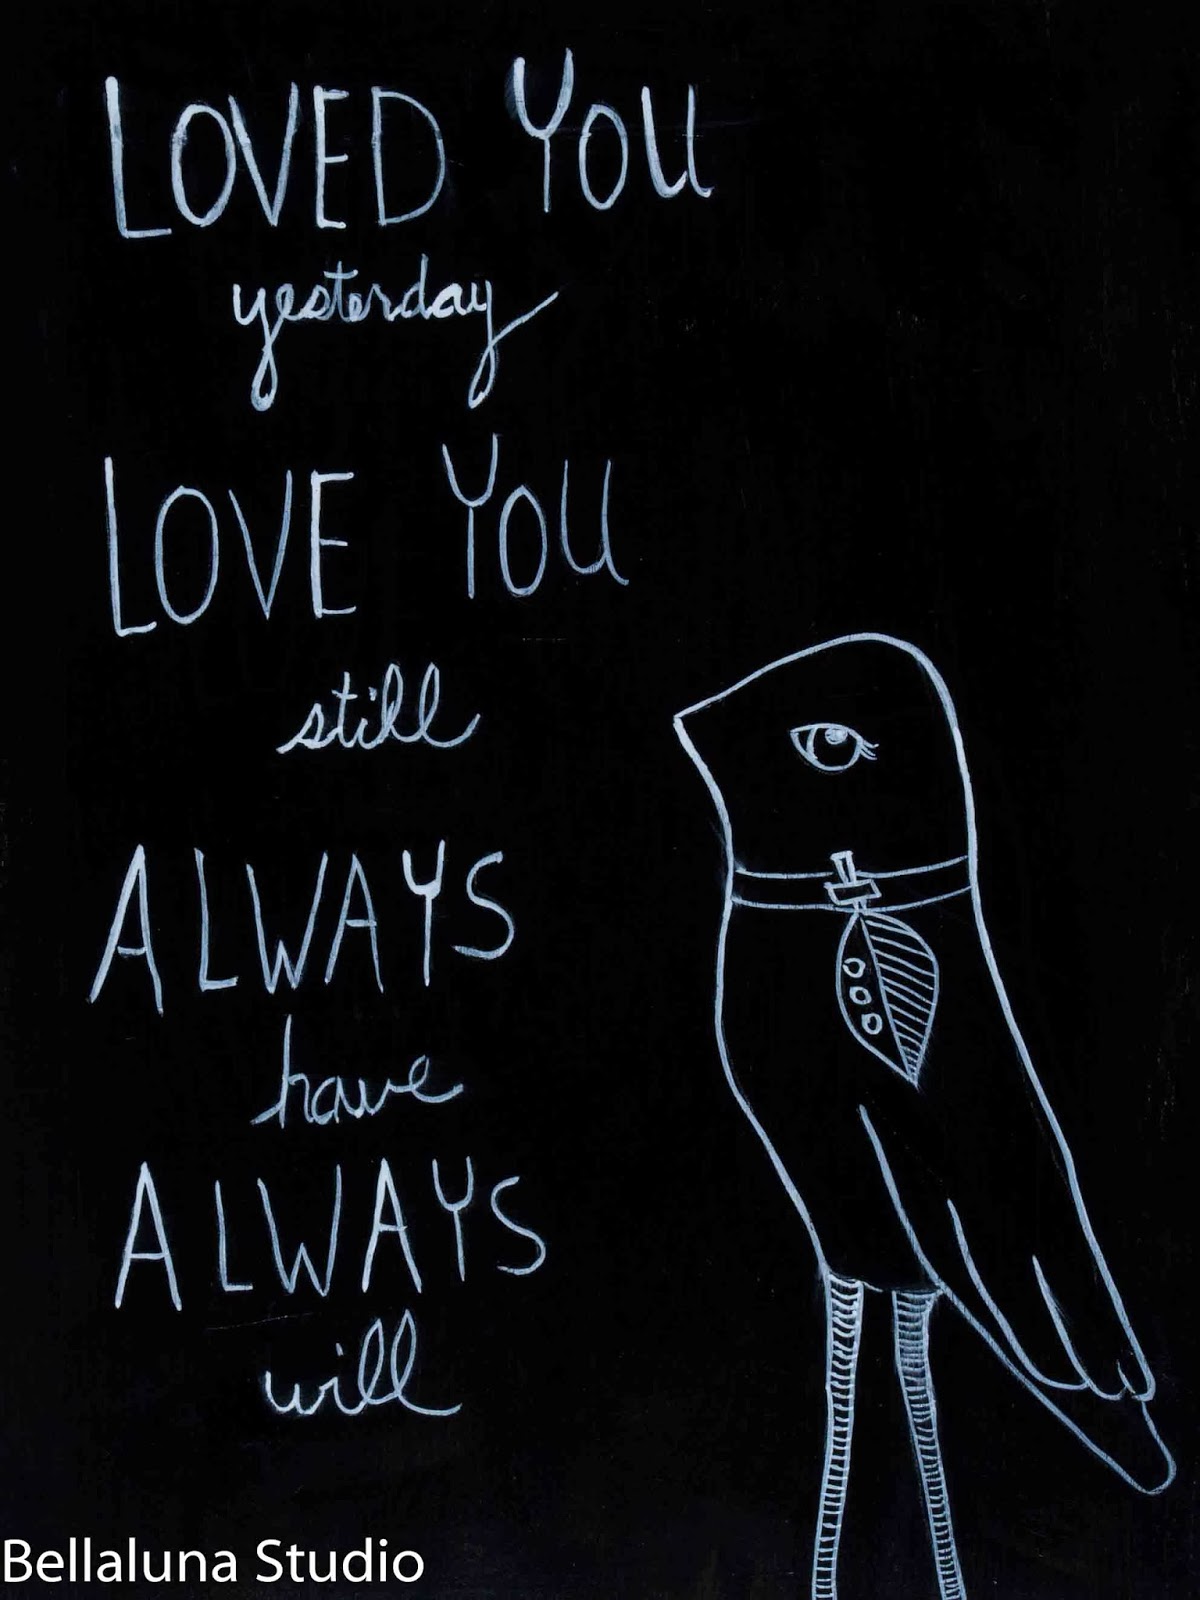 LOVED YOU
yesterday
LOVE YOU
still
ALWAYS
have
ALWAYS
will
Bellaluna Studio